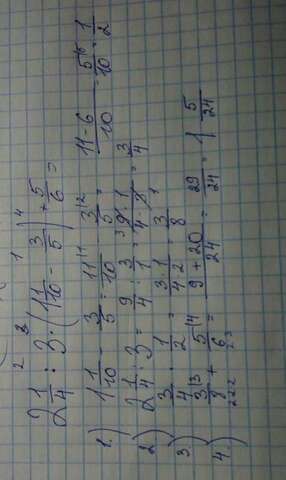 2 1/4 : 3 · (1 1/10 - 3/5) + 5/6 =
1.) 1 1/10 - 3/5 = 11/10 - 3/5 = 11-6/10 = 5/10 = 1/2
2) 2 1/4 : 3 = 9/4 : 3/1 = 9·1/4·3 = 3/4
3.) 3/4 · 1/2 = 3·1/4·2 = 3/8
4.) 3/8 + 5/6 = 9+20/24 = 29/24 = 1 5/24
2·2·2 2·3